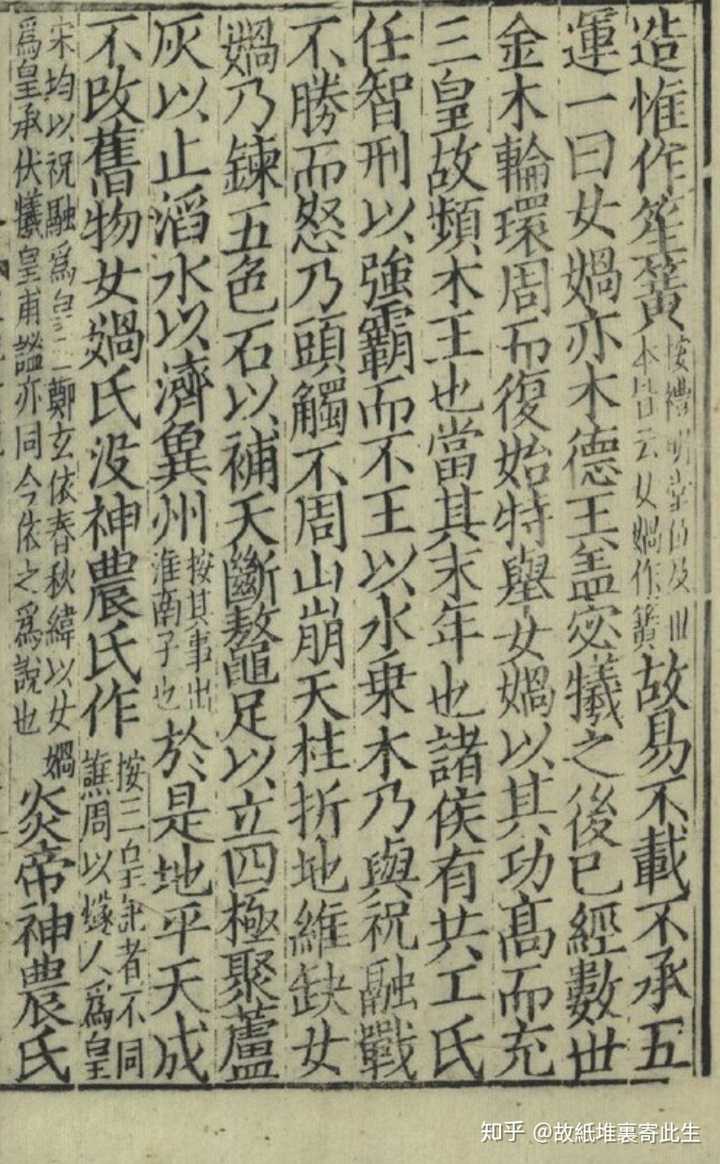 造惟作笙簧按禮明堂位及世本皆云女媧作簧故易不載不承五
運一曰女媧亦木德王盖宓犧之後已經數世
金木輪環周而復始特舉女媧以其功高而充
三皇故頻木王也當其末年也諸侯有共工氏
任智刑以強霸而不王以水乗木乃與祝融戰
不勝而怒乃頭觸不周山崩天柱折地維缺女
媧乃鍊五色石以補天斷鼇足以立四極聚蘆
灰以止滔水以濟冀州按其事出淮南子也於是地平天成
不改舊物女媧氏没神農氏作按三皇說者不同譙周以燧人爲皇
宋均以祝融爲皇鄭玄依春秋緯以女媧爲皇承伏犧皇甫謐亦同今依之爲說也炎帝神農氏
知乎 @故紙堆裏寄此生